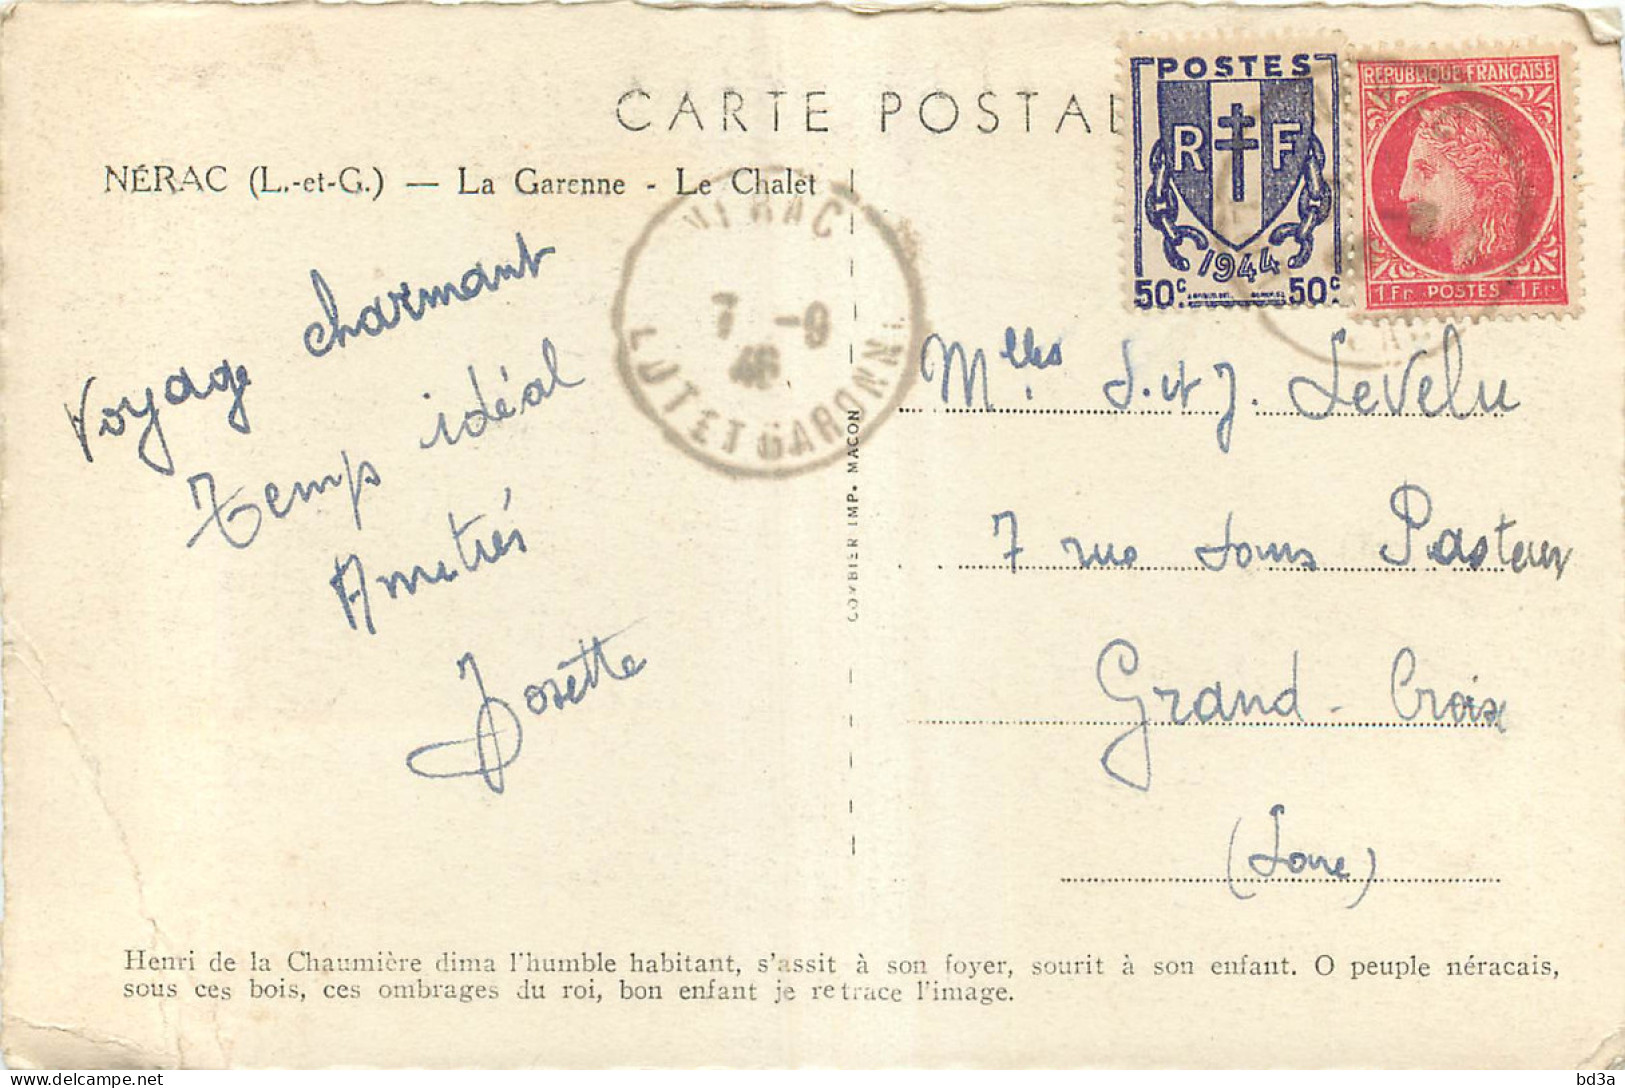 CARTE POSTAL
NÉRAC (L.-et-G.) — La Garenne - Le Chalet
Voyage charmant
Temps idéal
Amitiés
Josette
NERAC
7 -9
46
LOT ET GARONNE
COMBIER IMP. MACON
POSTES
R F
1944
50c 50c
REPUBLIQUE FRANÇAISE
1 Fr POSTES 1 Fr
Mlles S. et J. Levelu
7 rue Louis Pasteur
Grand-Croix
(Loire)
Henri de la Chaumière dima l'humble habitant, s'assit à son foyer, sourit à son enfant. O peuple néracais,
sous ces bois, ces ombrages du roi, bon enfant je retrace l'image.
bd3a